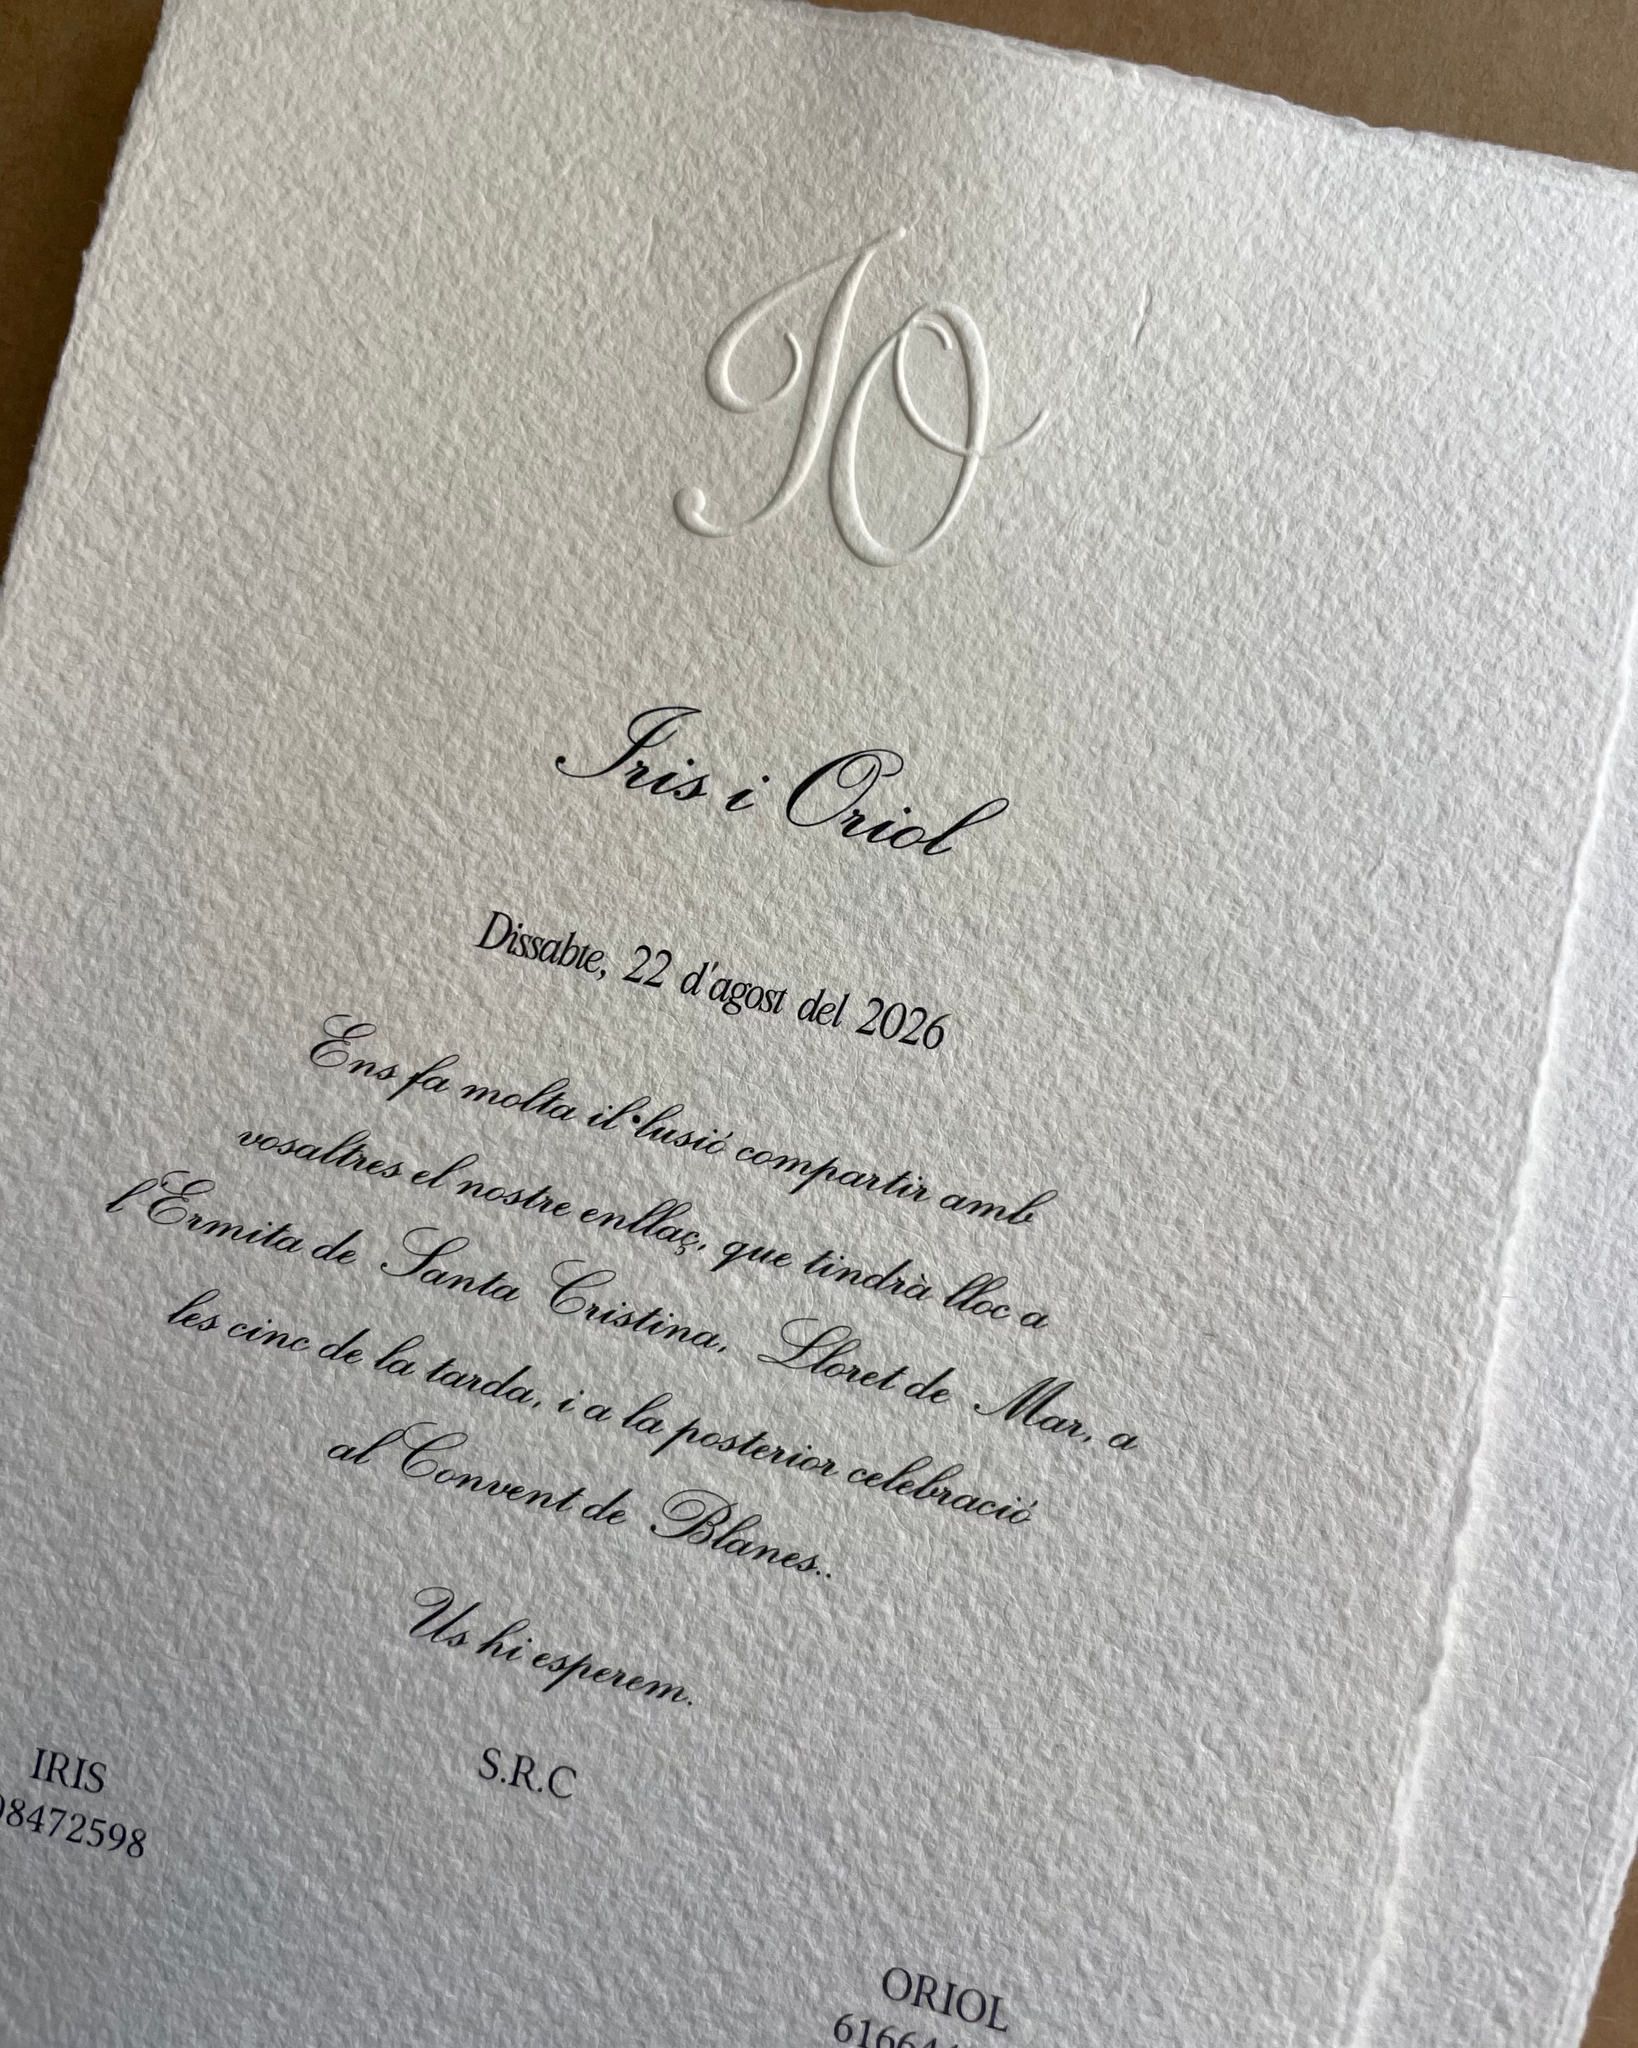 IO
Iris i Oriol
Dissabte, 22 d'agost del 2026
Ens fa molta il·lusió compartir amb
vosaltres el nostre enllaç, que tindrà lloc a
l'Ermita de Santa Cristina, Lloret de Mar, a
les cinc de la tarda, i a la posterior celebració
al Convent de Blanes..
Us hi esperem.
S.R.C
IRIS
ORIOL